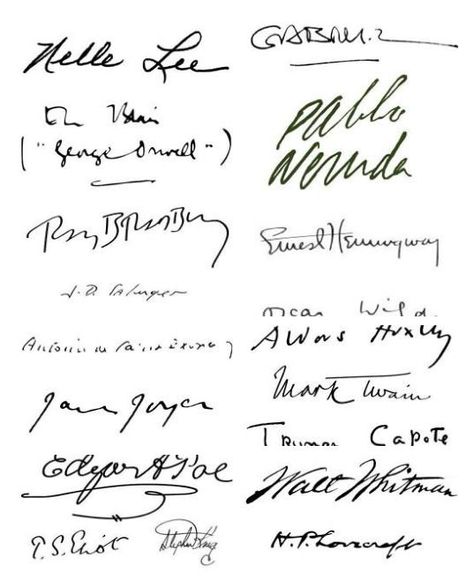 Nelle Lee
Eric Blair
("George Orwell")
Ray Bradbury
J.D. Salinger
Antoine de Saint Exupéry
James Joyce
Edgar A Poe
T.S. Eliot
Stephen King
Pablo
Neruda
Ernest Hemingway
Oscar Wilde
Aldous Huxley
Mark Twain
Truman Capote
Walt Whitman
H.P. Lovecraft